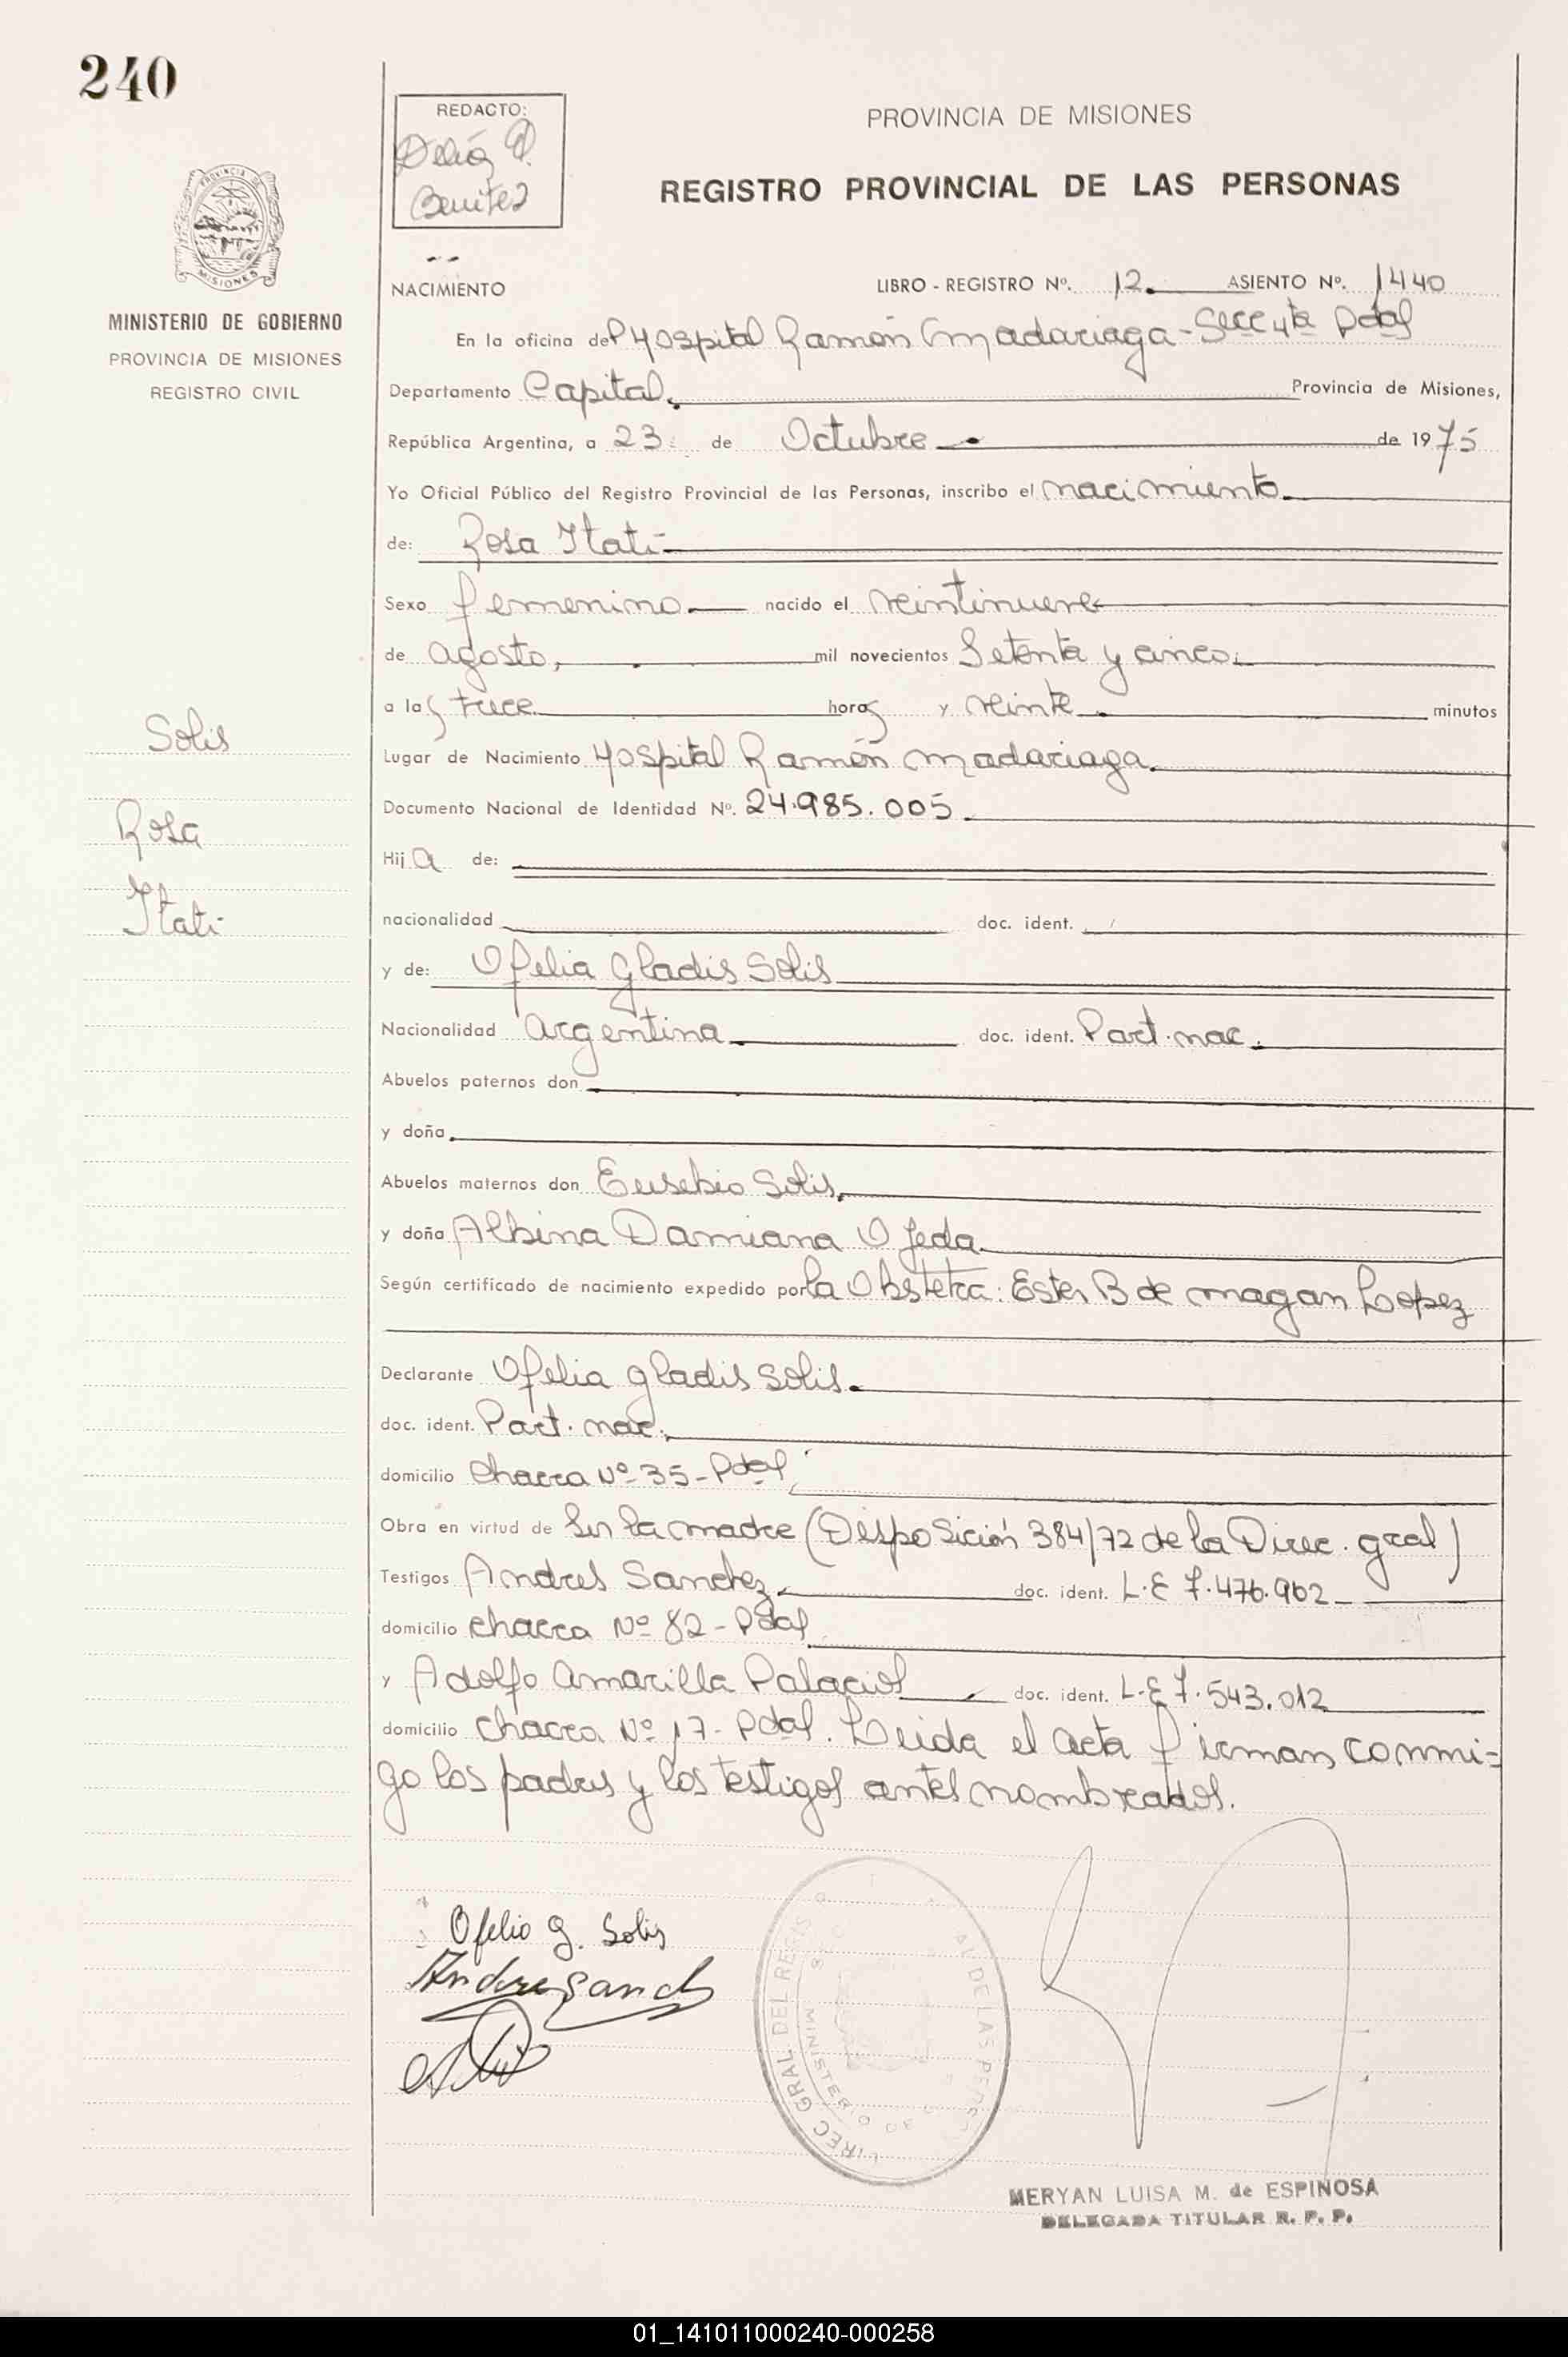 240
REDACTO:
Delia
Benitez
PROVINCIA DE MISIONES
REGISTRO PROVINCIAL DE LAS PERSONAS
MINISTERIO DE GOBIERNO
PROVINCIA DE MISIONES
REGISTRO CIVIL
NACIMIENTO LIBRO - REGISTRO Nº. 12. ASIENTO Nº. 1440
En la oficina del Hospital Ramón Madariaga - Secc 4ta Pdas
Departamento Capital. Provincia de Misiones,
República Argentina, a 23 de Octubre de 1975
Yo Oficial Público del Registro Provincial de las Personas, inscribo el nacimiento
de: Rosa Itati
Sexo femenino nacido el veintinueve
de agosto, mil novecientos Setenta y cinco.
a las trece horas y veinte minutos
Solis
Lugar de Nacimiento Hospital Ramón Madariaga.
Documento Nacional de Identidad Nº. 24.985.005
Rosa
Hija de:
Itati
nacionalidad doc. ident.
y de: Ofelia Gladis Solis
Nacionalidad Argentina doc. ident. Part. nac.
Abuelos paternos don
y doña
Abuelos maternos don Eusebio Solis,
y doña Albina Damiana Ojeda
Según certificado de nacimiento expedido por la Obstetra: Ester B de Magan Lopez
Declarante Ofelia Gladis Solis.
doc. ident. Part. nac.
domicilio Chacra Nº 35 - Pdas
Obra en virtud de Ser la madre (Disposición 384/72 de la Direc. gral)
Testigos Andres Sanchez doc. ident. L.E 7.476.962
domicilio Chacra Nº 82 - Pdas
y Adolfo Amarilla Palacios doc. ident. L.E 7.543.012
domicilio Chacra Nº 17 - Pdas. Leida el acta firman conmi=
go los padres y los testigos antes nombrados.
Ofelia G. Solis
Andres Sanch
DIREC GRAL DEL REGIS DE LAS PERS
MINISTERIO DE
MERYAN LUISA M. de ESPINOSA
DELEGADA TITULAR R. P. P.
01_141011000240-000258